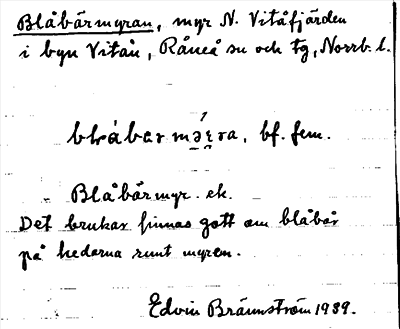 Blåbärmyran, myr N. Vitåfjärden
i byn Vitån, Råneå sn och tg, Norrb. l.
bf. fem.
Blåbärmyr. ek.
Det brukar finnas gott om blåbär
på hedarna runt myren.
Edvin Brännström 1939.